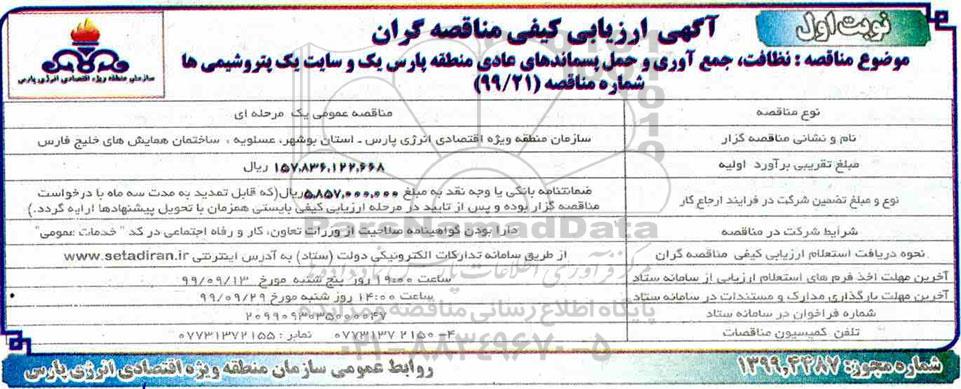 نوبت اول
آگهی ارزیابی کیفی مناقصه گران
موضوع مناقصه : نظافت، جمع آوری و حمل پسماندهای عادی منطقه پارس یک و سایت یک پتروشیمی ها
شماره مناقصه (۹۹/۲۱)
سازمان منطقه ویژه اقتصادی انرژی پارس
نوع مناقصه مناقصه عمومی یک مرحله ای
نام و نشانی مناقصه گزار سازمان منطقه ویژه اقتصادی انرژی پارس ـ استان بوشهر، عسلویه ، ساختمان همایش های خلیج فارس
مبلغ تقریبی برآورد اولیه ۱۵۷,۸۳۶,۱۲۲,۶۶۸ ریال
نوع و مبلغ تضمین شرکت در فرایند ارجاع کار ضمانتنامه بانکی یا وجه نقد به مبلغ ۵,۸۵۷,۰۰۰,۰۰۰ ریال(که قابل تمدید به مدت سه ماه با درخواست
مناقصه گزار بوده و پس از تایید در مرحله ارزیابی کیفی بایستی همزمان با تحویل پیشنهادها ارایه گردد.)
شرایط شرکت در مناقصه دارا بودن گواهینامه صلاحیت از وزرات تعاون، کار و رفاه اجتماعی در کد " خدمات عمومی"
نحوه دریافت استعلام ارزیابی کیفی مناقصه گران از طریق سامانه تدارکات الکترونیکی دولت (ستاد) به آدرس اینترنتی www.setadiran.ir
آخرین مهلت اخذ فرم های استعلام ارزیابی از سامانه ستاد ساعت ۱۹:۰۰ روز پنج شنبه مورخ ۹۹/۰۹/۱۳
آخرین مهلت بارگذاری مدارک و مستندات در سامانه ستاد ساعت ۱۴:۰۰ روز شنبه مورخ ۹۹/۰۹/۲۹
شماره فراخوان در سامانه ستاد ۲۰۹۹۰۹۳۰۳۵۰۰۰۰۴۷
تلفن کمیسیون مناقصات ۴– ۰۷۷۳۱۳۷ ۲۱۵۰ نمابر : ۰۷۷۳۱۳۷۲۱۵۵
شماره مجوز: ۱۳۹۹,۴۴۸۷
روابط عمومی سازمان منطقه ویژه اقتصادی انرژی پارس
ParsNamadData
پایگاه اطلاع رسانی مناقصه و مزایده
۰۲۱-۸۸۳۴۹۶۷۰-۵